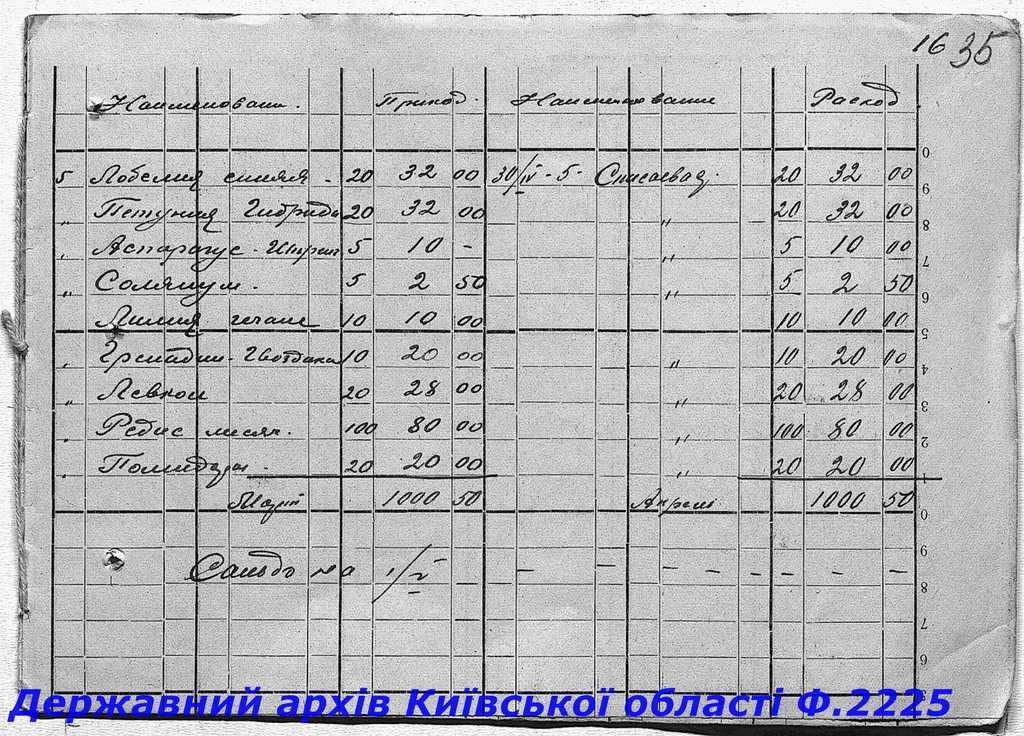 16 35
Наименовани. Приход. Наименование Расход
5 Лобелия синяя - 20 32 00 30/IV - 5 - Списаевад. 20 32 00
" Петуния Гибрида 20 32 00 " 20 32 00
" Аспарагус - 5 10 - " 5 10 00
" Соляниум. 5 2 50 " 5 2 50
Лилия 10 10 00 10 10 00
" 10 20 00 " 10 20 00
" Левкои 20 28 00 " 20 28 00
" Редис месяч. 100 80 00 " 100 80 00
" Помидоры - 20 20 00 " 20 20 00
Март 1000 50 Апрель 1000 50
Сальдо на 1/V - - - - - - - - -
0
9
8
7
6
5
4
3
2
1
0
9
8
7
6
5
Державний архів Київської області Ф.2225